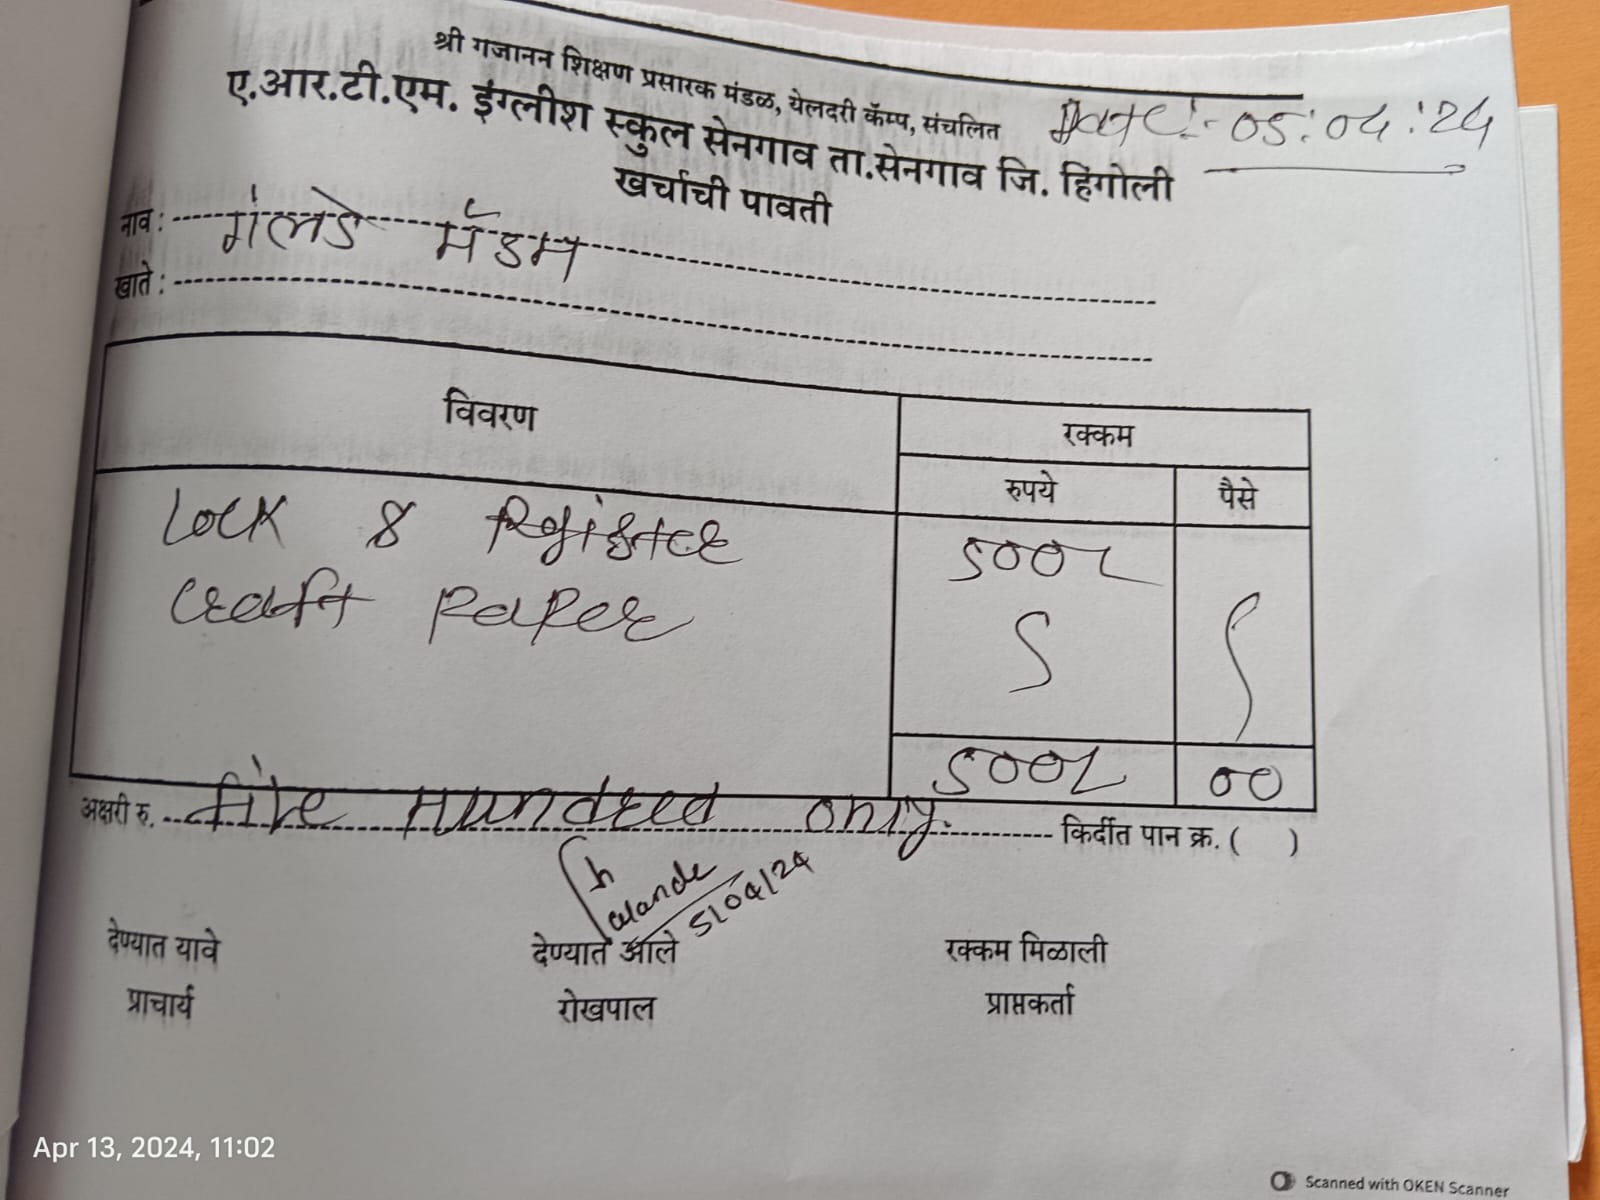 श्री गजानन शिक्षण प्रसारक मंडळ, येलदरी कॅम्प, संचलित
Date:- 05:04:24
ए.आर.टी.एम. इंग्लीश स्कुल सेनगाव ता.सेनगाव जि. हिंगोली
खर्चाची पावती
नाव : गलंडे मॅडम
खाते :
विवरण रक्कम
रुपये पैसे
Lock & Register 500/-
Craft Paper
500/- 00
अक्षरी रु. five Hundred only. किर्दीत पान क्र. ( )
5/04/24
देण्यात यावे देण्यात आले रक्कम मिळाली
प्राचार्य रोखपाल प्राप्तकर्ता
Apr 13, 2024, 11:02
Scanned with OKEN Scanner